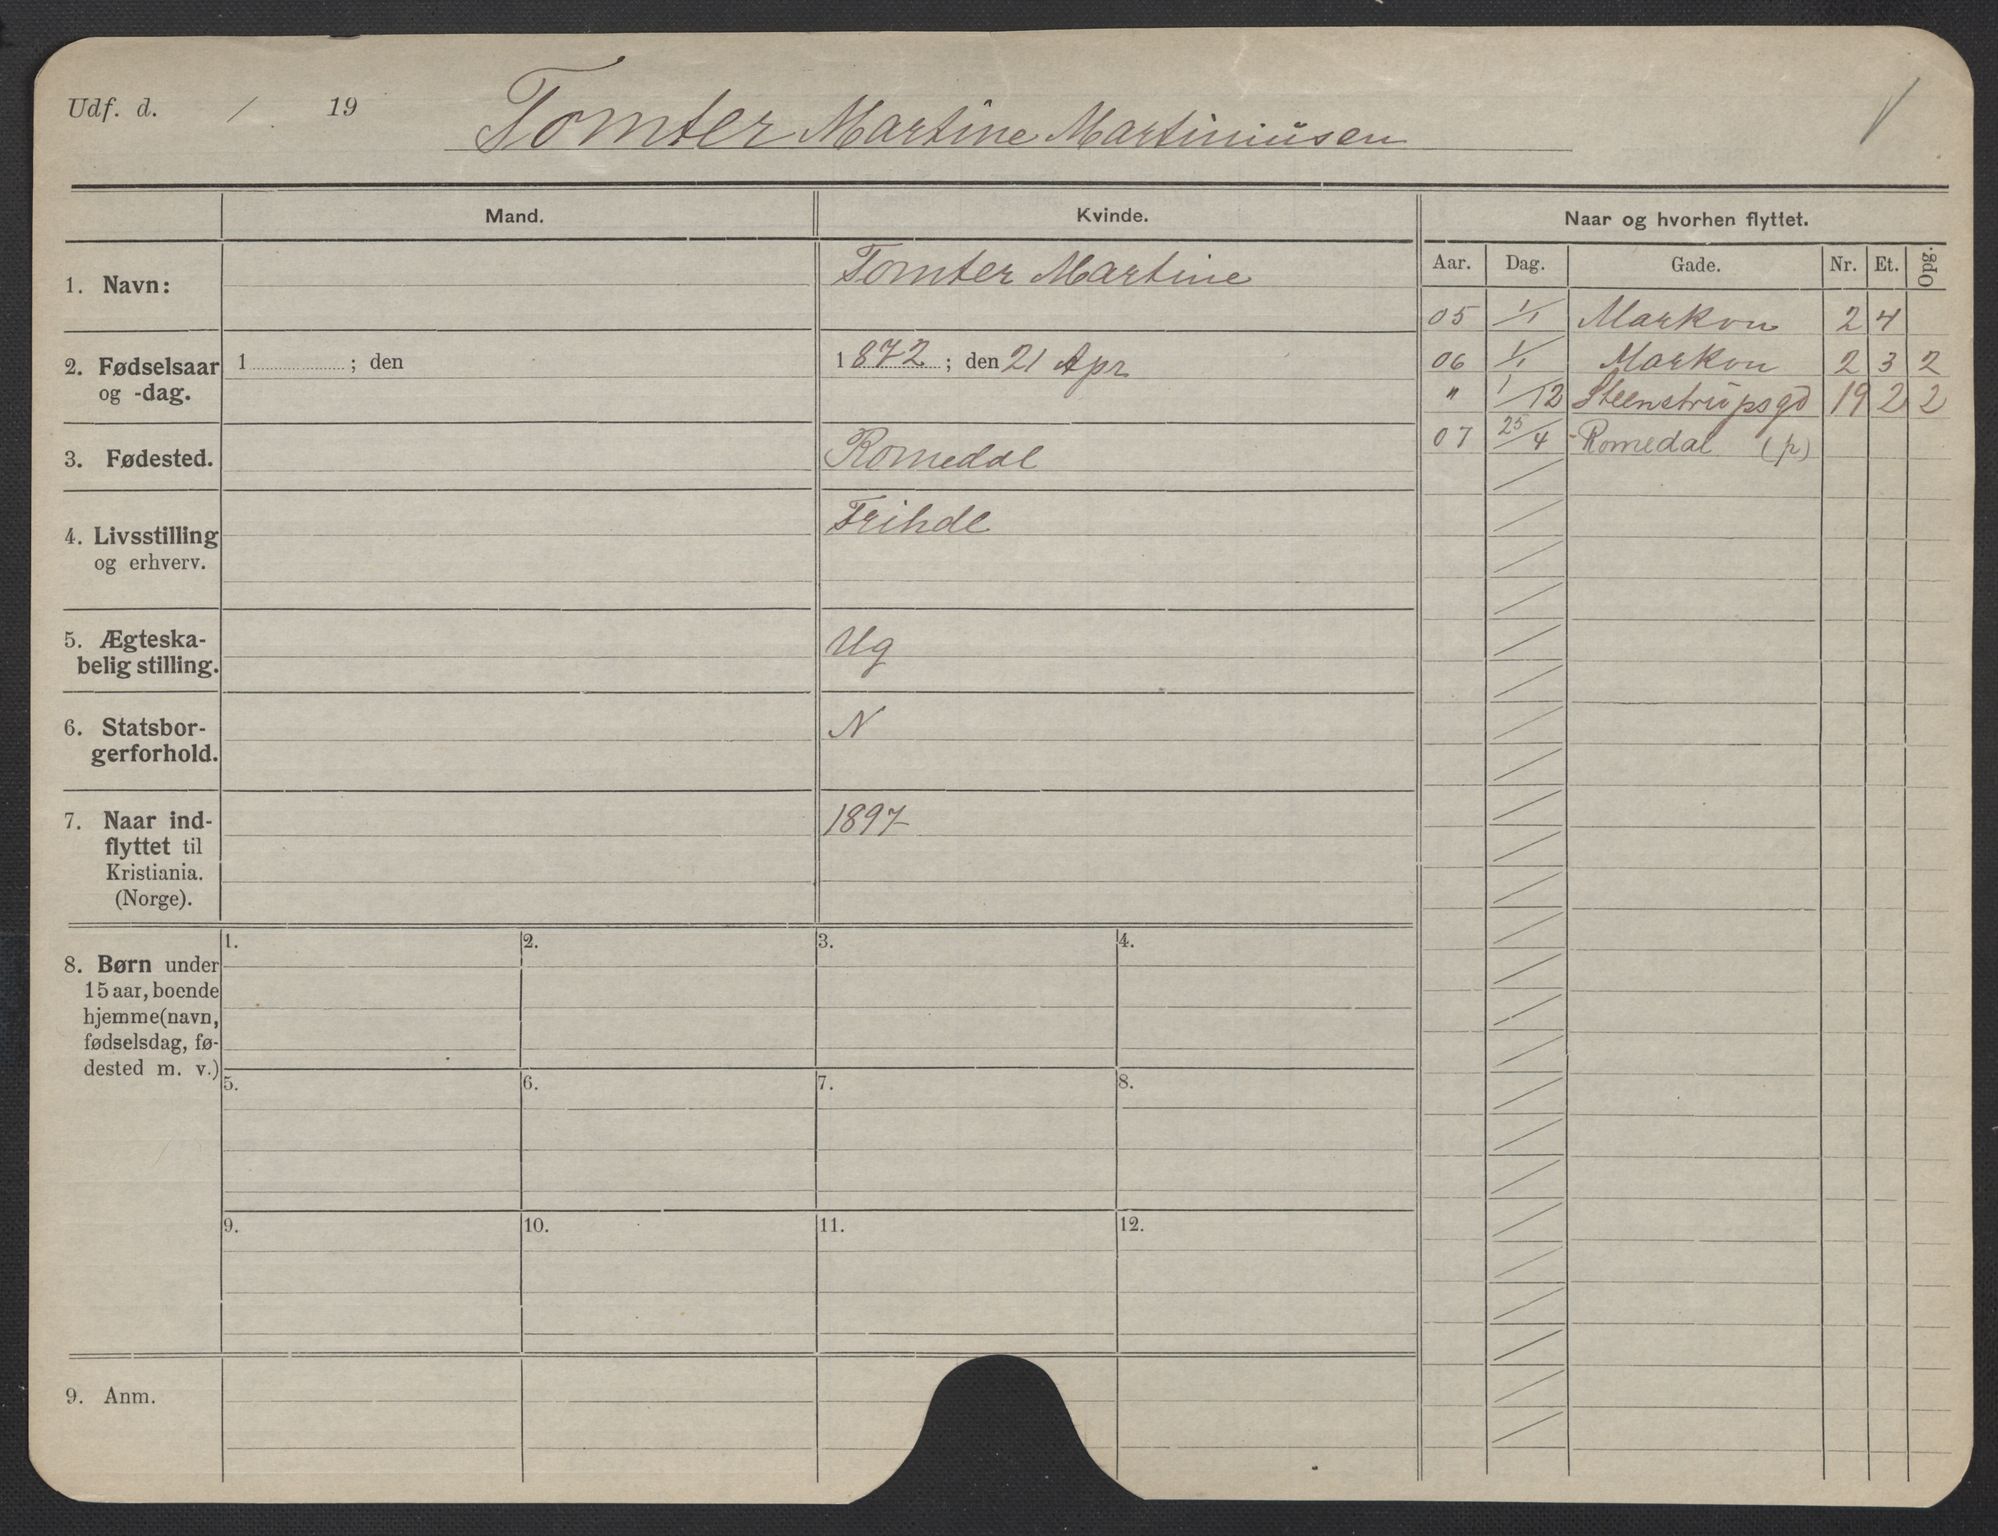 Udf. d. / 19
Tomter Martine Martiniusen
Mand. Kvinde. Naar og hvorhen flyttet.
Aar. Dag. Gade. Nr. Et. Opg.
1. Navn: Tomter Martine
05 1/1 Markvn 2 4
2. Fødselsaar og -dag. 1 ; den 1872 ; den 21 Apr
06 1/1 Markvn 2 3 2
" 1/12 Steenstrupsgd 19 2 2
07 25/4 Romedal (p)
3. Fødested. Romedal
4. Livsstilling og erhverv. Frihdl
5. Ægteska-
belig stilling. Ug
6. Statsbor-
gerforhold. N
7. Naar ind-
flyttet til
Kristiania.
(Norge). 1897
8. Børn under
15 aar, boende
hjemme (navn,
fødselsdag, fø-
dested m. v.)
1. 2. 3. 4.
5. 6. 7. 8.
9. 10. 11. 12.
9. Anm.